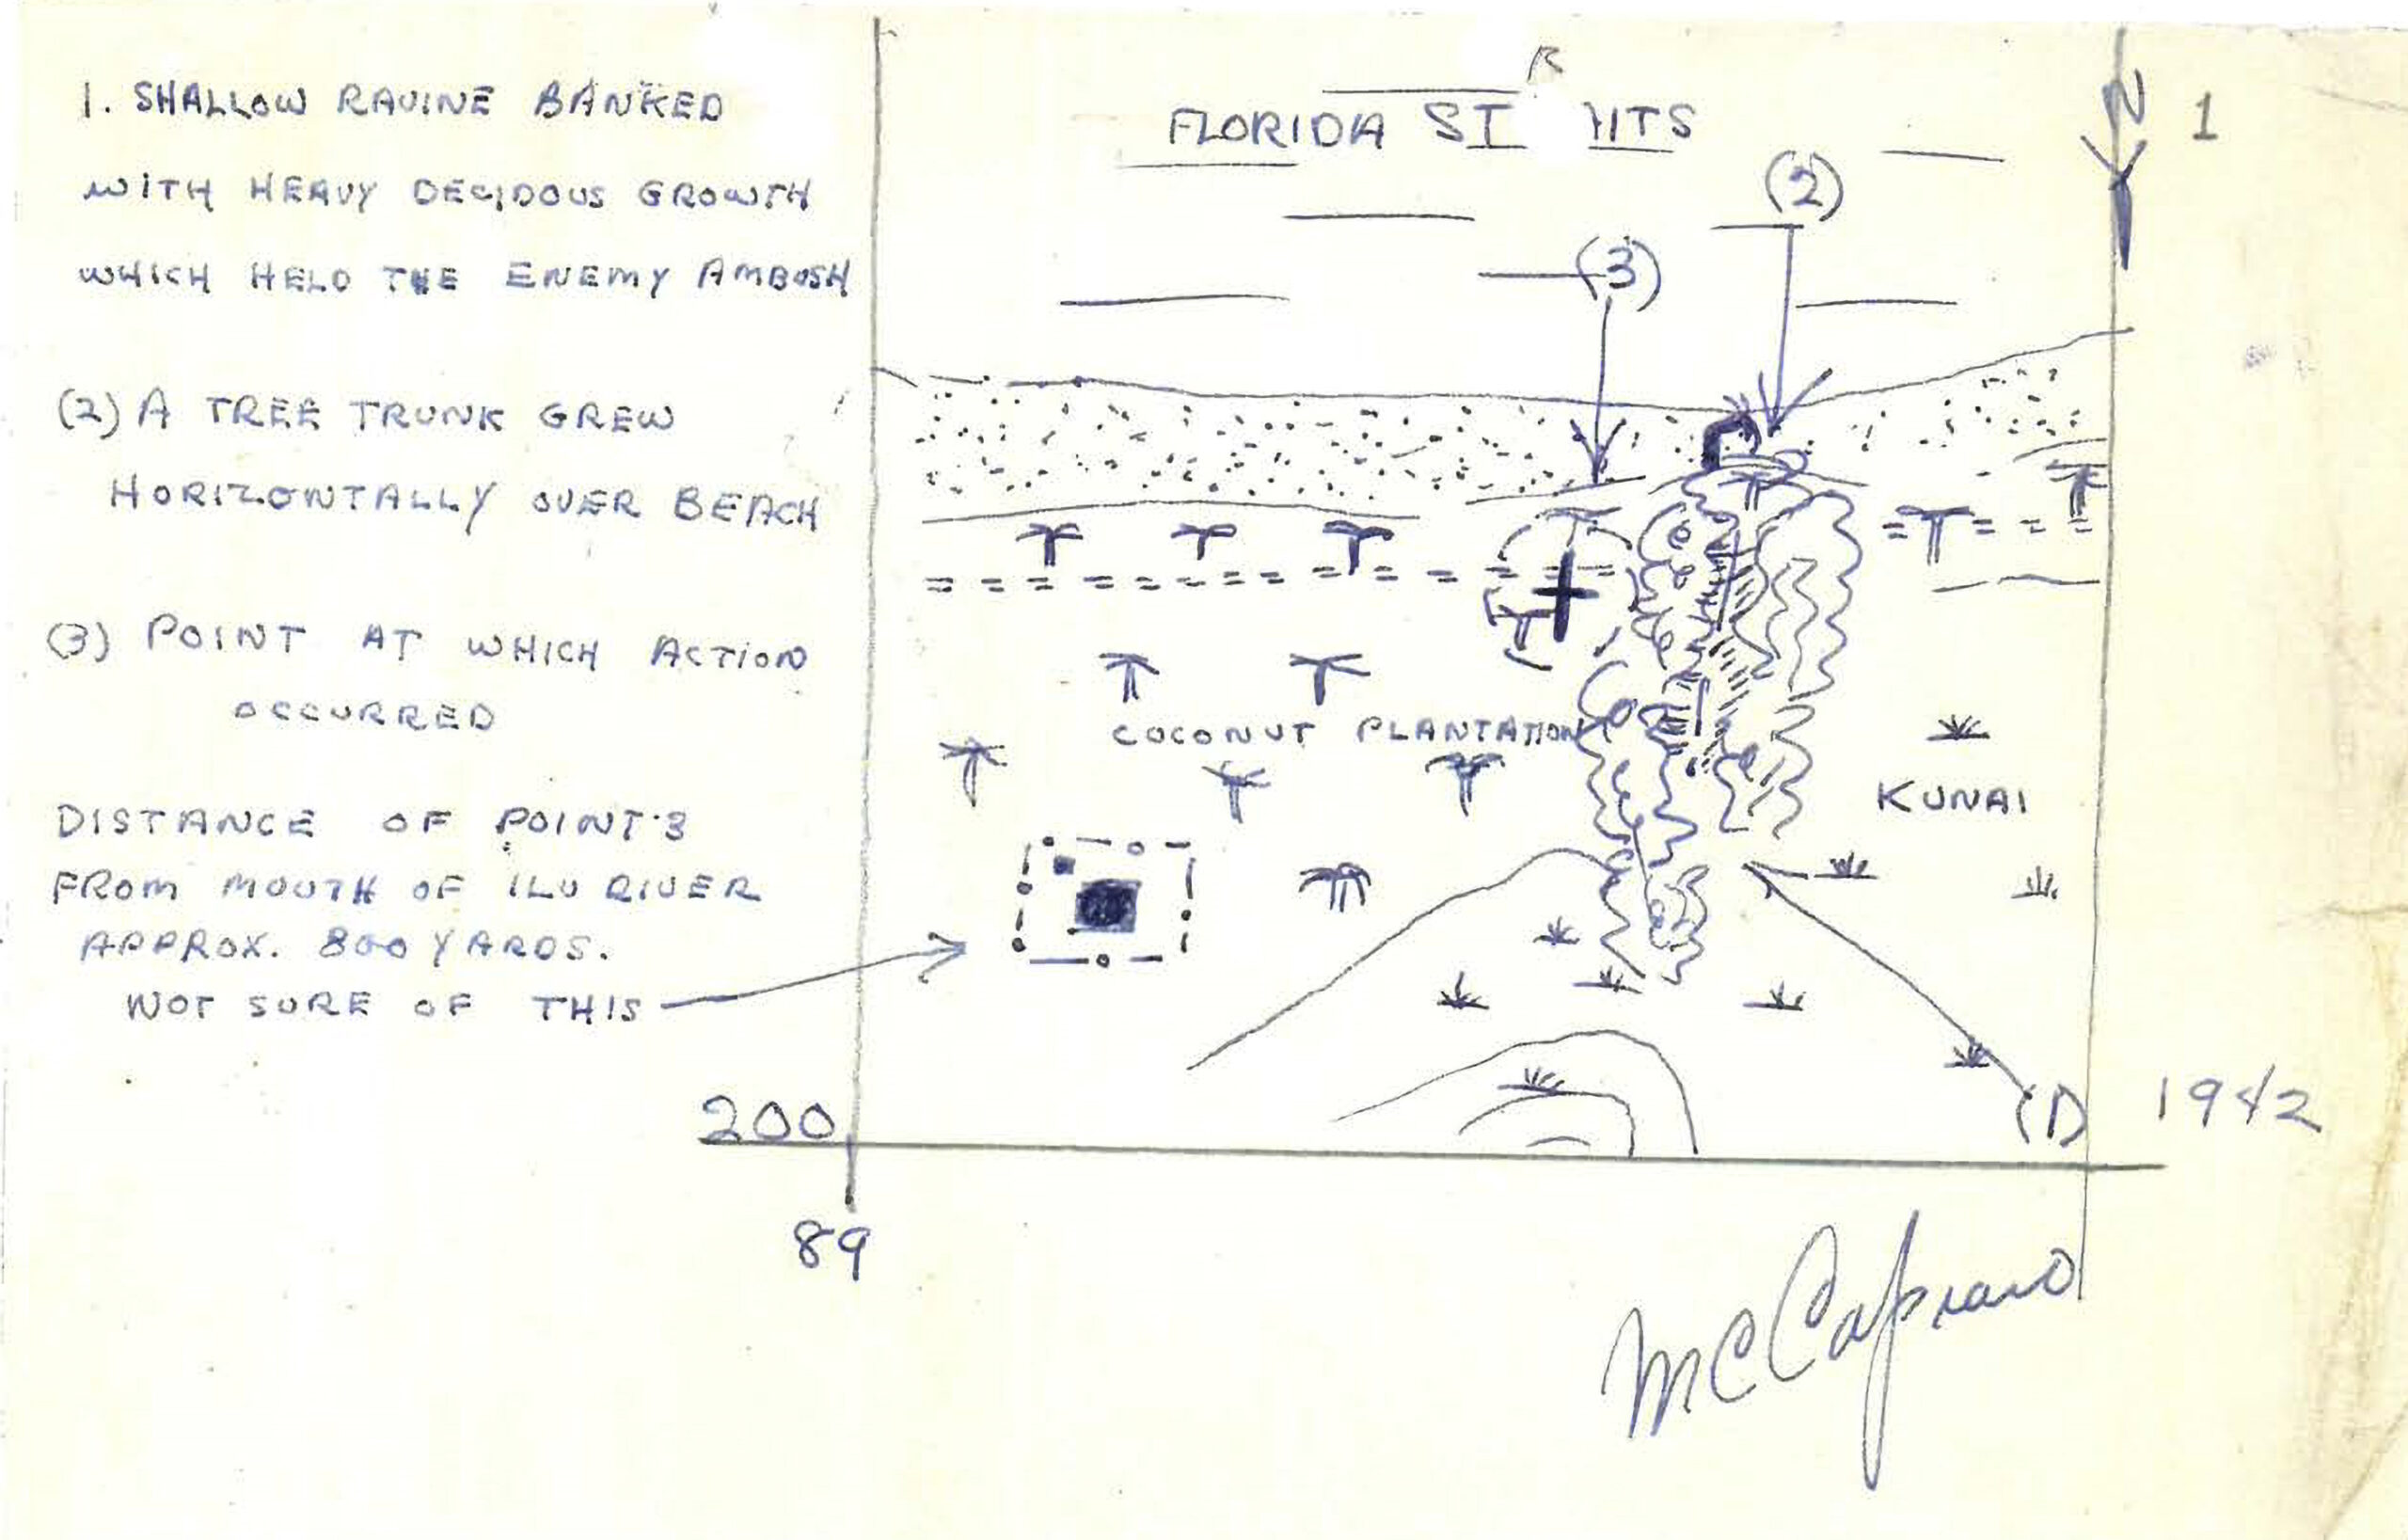 1. SHALLOW RAVINE BANKED
WITH HEAVY DECIDOUS GROWTH
WHICH HELD THE ENEMY AMBUSH
(2) A TREE TRUNK GREW
HORIZONTALLY OVER BEACH
(3) POINT AT WHICH ACTION
OCCURRED
DISTANCE OF POINT 3
FROM MOUTH OF ILU RIVER
APPROX. 800 YARDS.
NOT SURE OF THIS
R
FLORIDA ST
HTS
N
1
(2)
(3)
COCONUT PLANTATION
KUNAI
(1)
1942
200
89